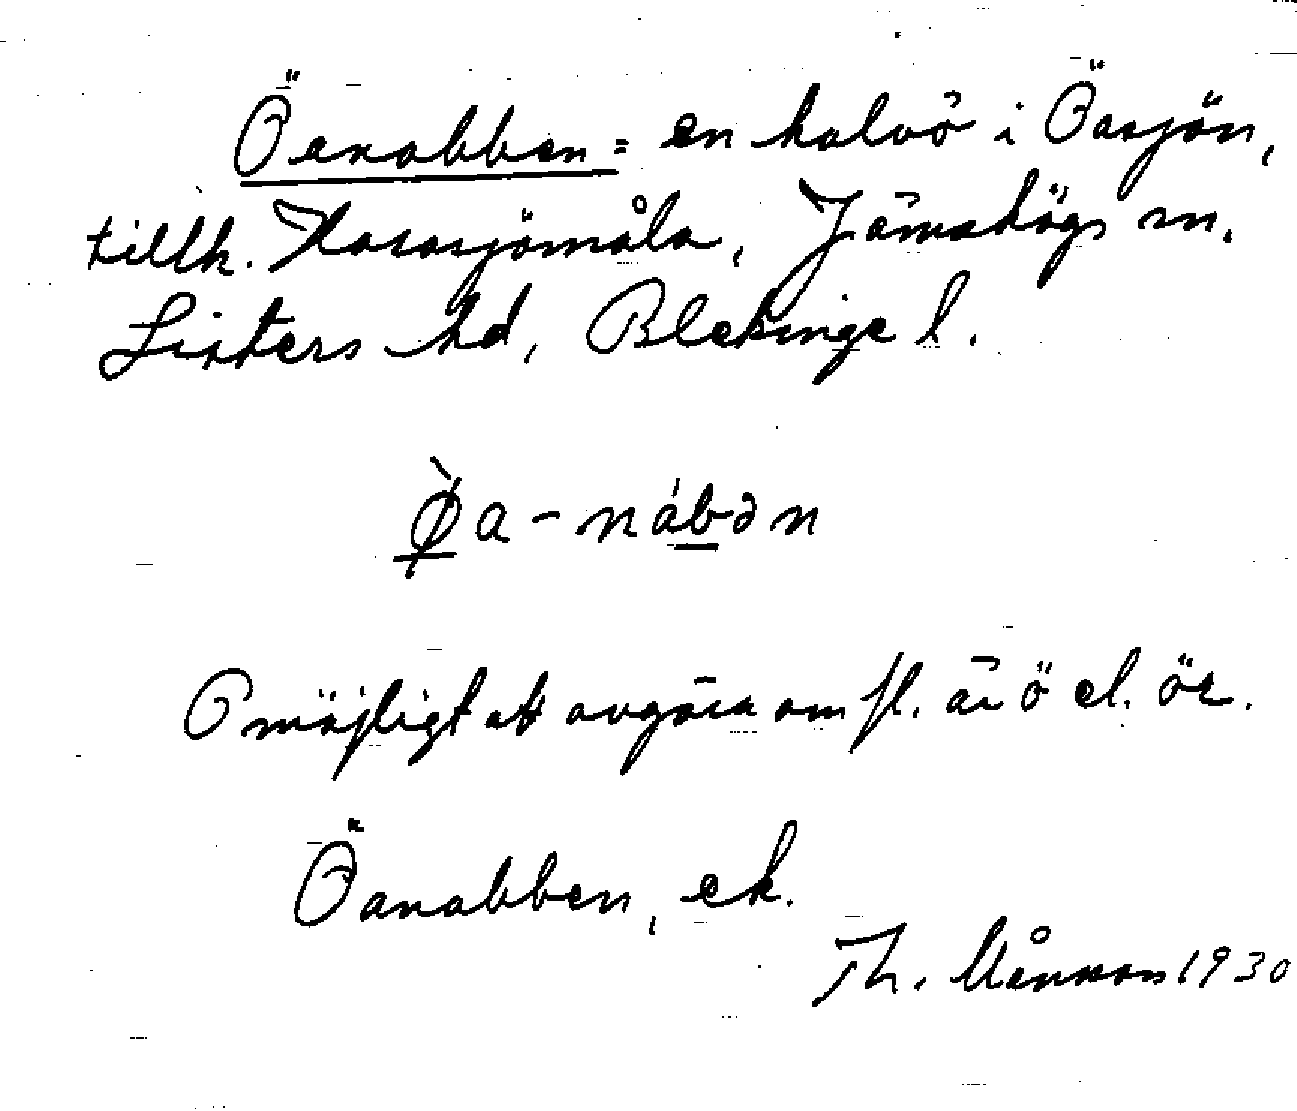 Öanabben = en halvö i Öasjön,
tillh. Harasjömåla, Jämshögs sn.
Listers hd, Blekinge l.
Ø̀a-nábən
Omöjligt att avgöra om fl. är ö el. ör.
Öanabben, ek.
Th. Månsson 1930